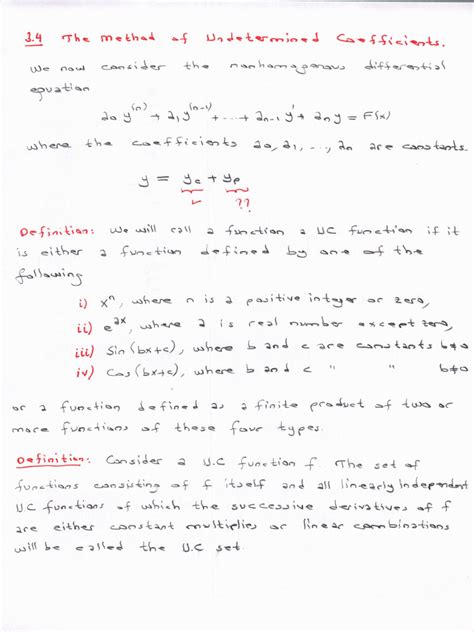 3.4 The Method of Undetermined Coefficients.
We now consider the nonhomogenous differential
equation
a₀ y⁽ⁿ⁾ + a₁ y⁽ⁿ⁻¹⁾ + ... + aₙ₋₁ y' + aₙ y = F(x)
where the coefficients a₀, a₁, ..., aₙ are constants.
y = y_c + y_p
✓ ??
Definition: We will call a function a UC function if it
is either a function defined by one of the
following
i) xⁿ, where n is a positive integer or zero,
ii) e^{ax}, where a is real number except zero,
iii) Sin (bx+c), where b and c are constants b≠0
iv) Cos (bx+c), where b and c " " b≠0
or a function defined as a finite product of two or
more functions of these four types.
Definition: Consider a U.C function f The set of
functions consisting of f itself and all linearly independent
U.C functions of which the successive derivatives of f
are either constant multiplies or linear combinations
will be called the U.C set.